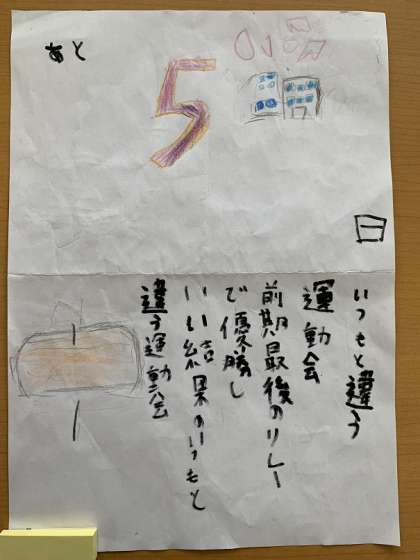 あと
5
日
いつもと違う
運動会
前期最後のリレー
で優勝し
いい結果のいつもと
違う運動会